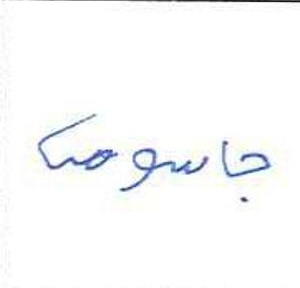 جاسومک